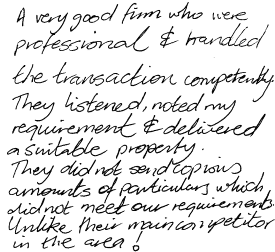 A very good firm who were
professional & handled
the transaction competently.
They listened, noted my
requirement & delivered
a suitable property.
They did not send copious
amounts of particulars which
did not meet our requirements
Unlike their main competitor
in the area!